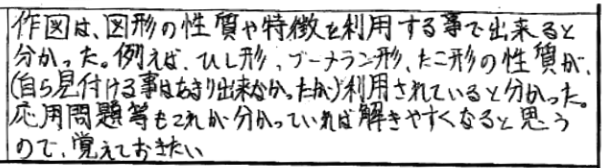 作図は、図形の性質や特徴を利用する事で出来ると
分かった。例えば、ひし形、ブーメラン形、たこ形の性質が、
(自ら見付ける事はあまり出来なかったが)利用されていると分かった。
応用問題等もこれが分かっていれば解きやすくなると思う
ので、覚えておきたい